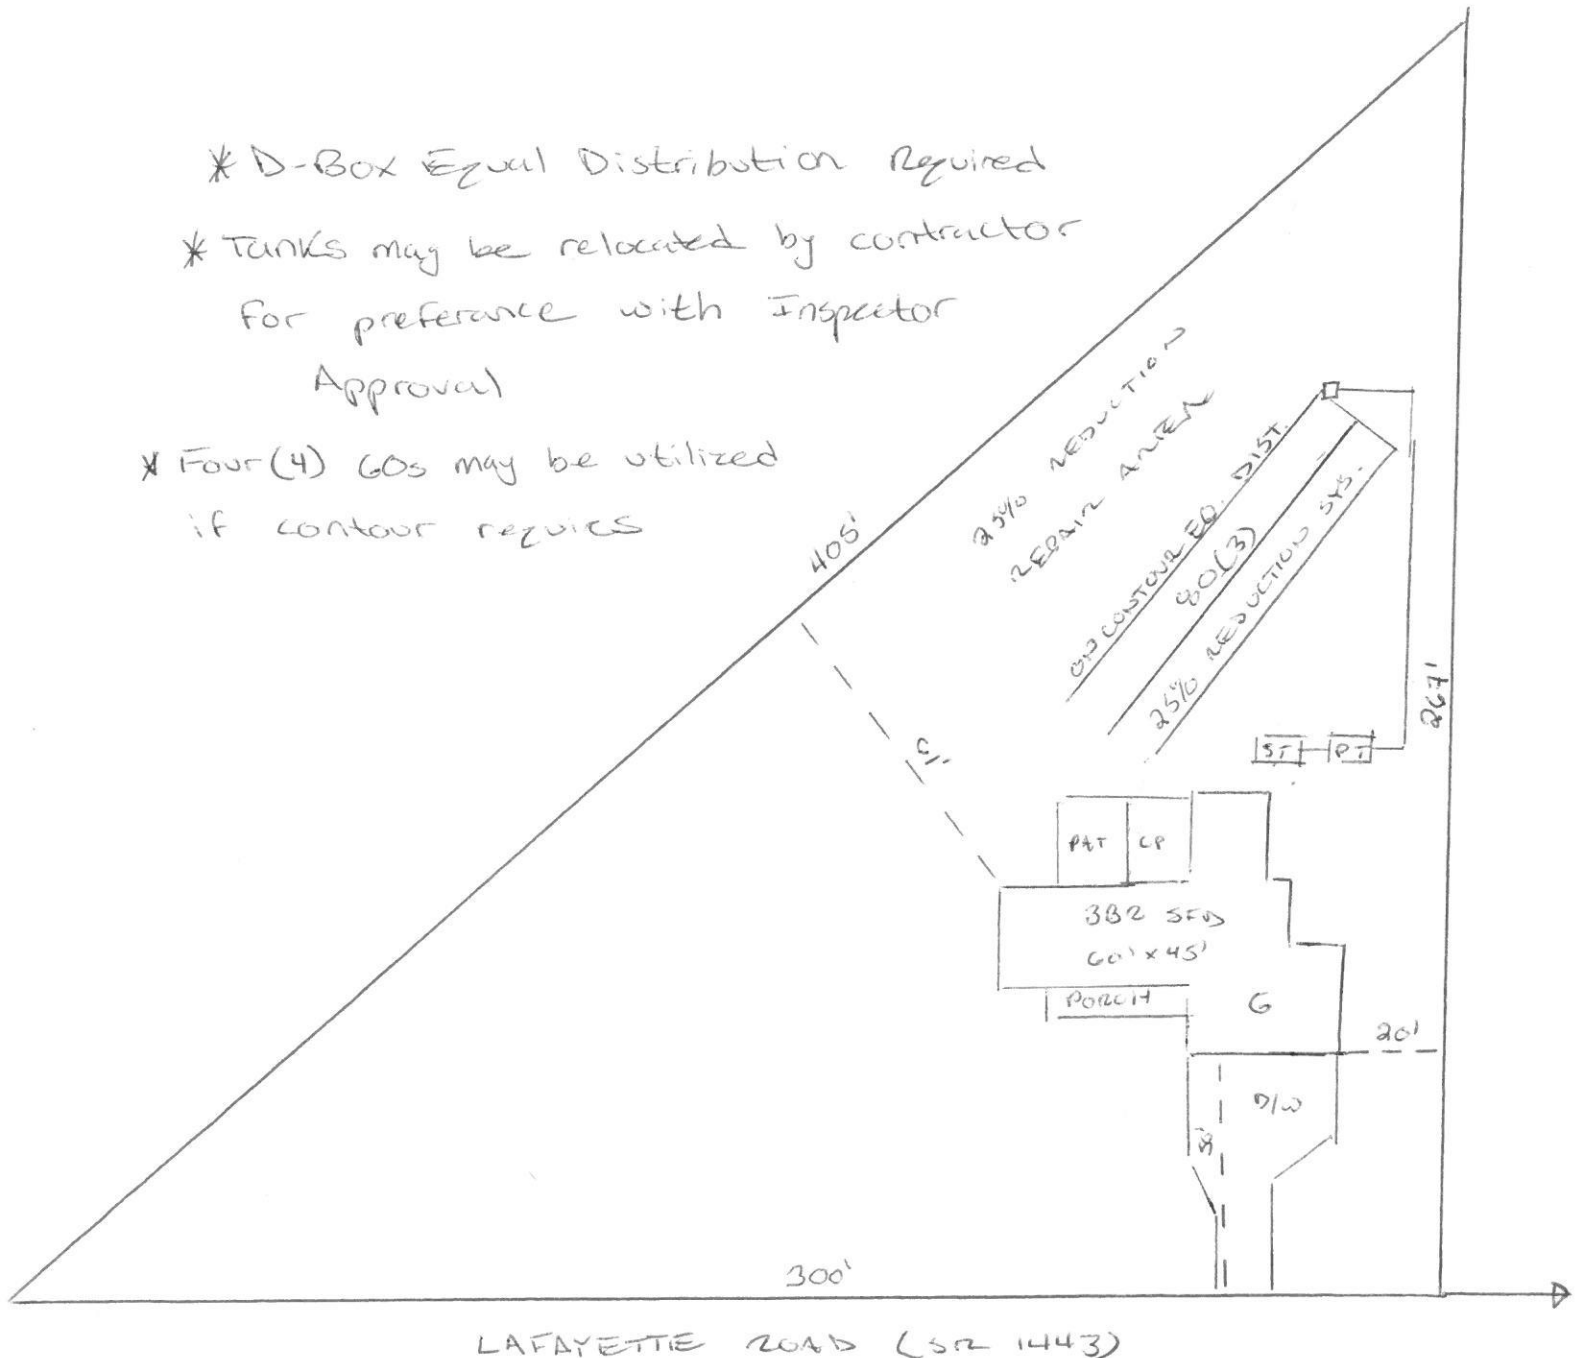 * D-Box Equal Distribution Required
* Tanks may be relocated by contractor
for preferance with Inspector
Approval
* Four (4) 60s may be utilized
if contour requies
405'
25% REDUCTION
REPAIR
ON CONTOUR EQ. DIST.
80(3)
25% REDUCTION SYS.
267'
ST
PT
PAT
CP
SFD
60' x 45'
PORCH
G
20'
D/W
300'
LAFAYETTE ROAD (SR 1443)